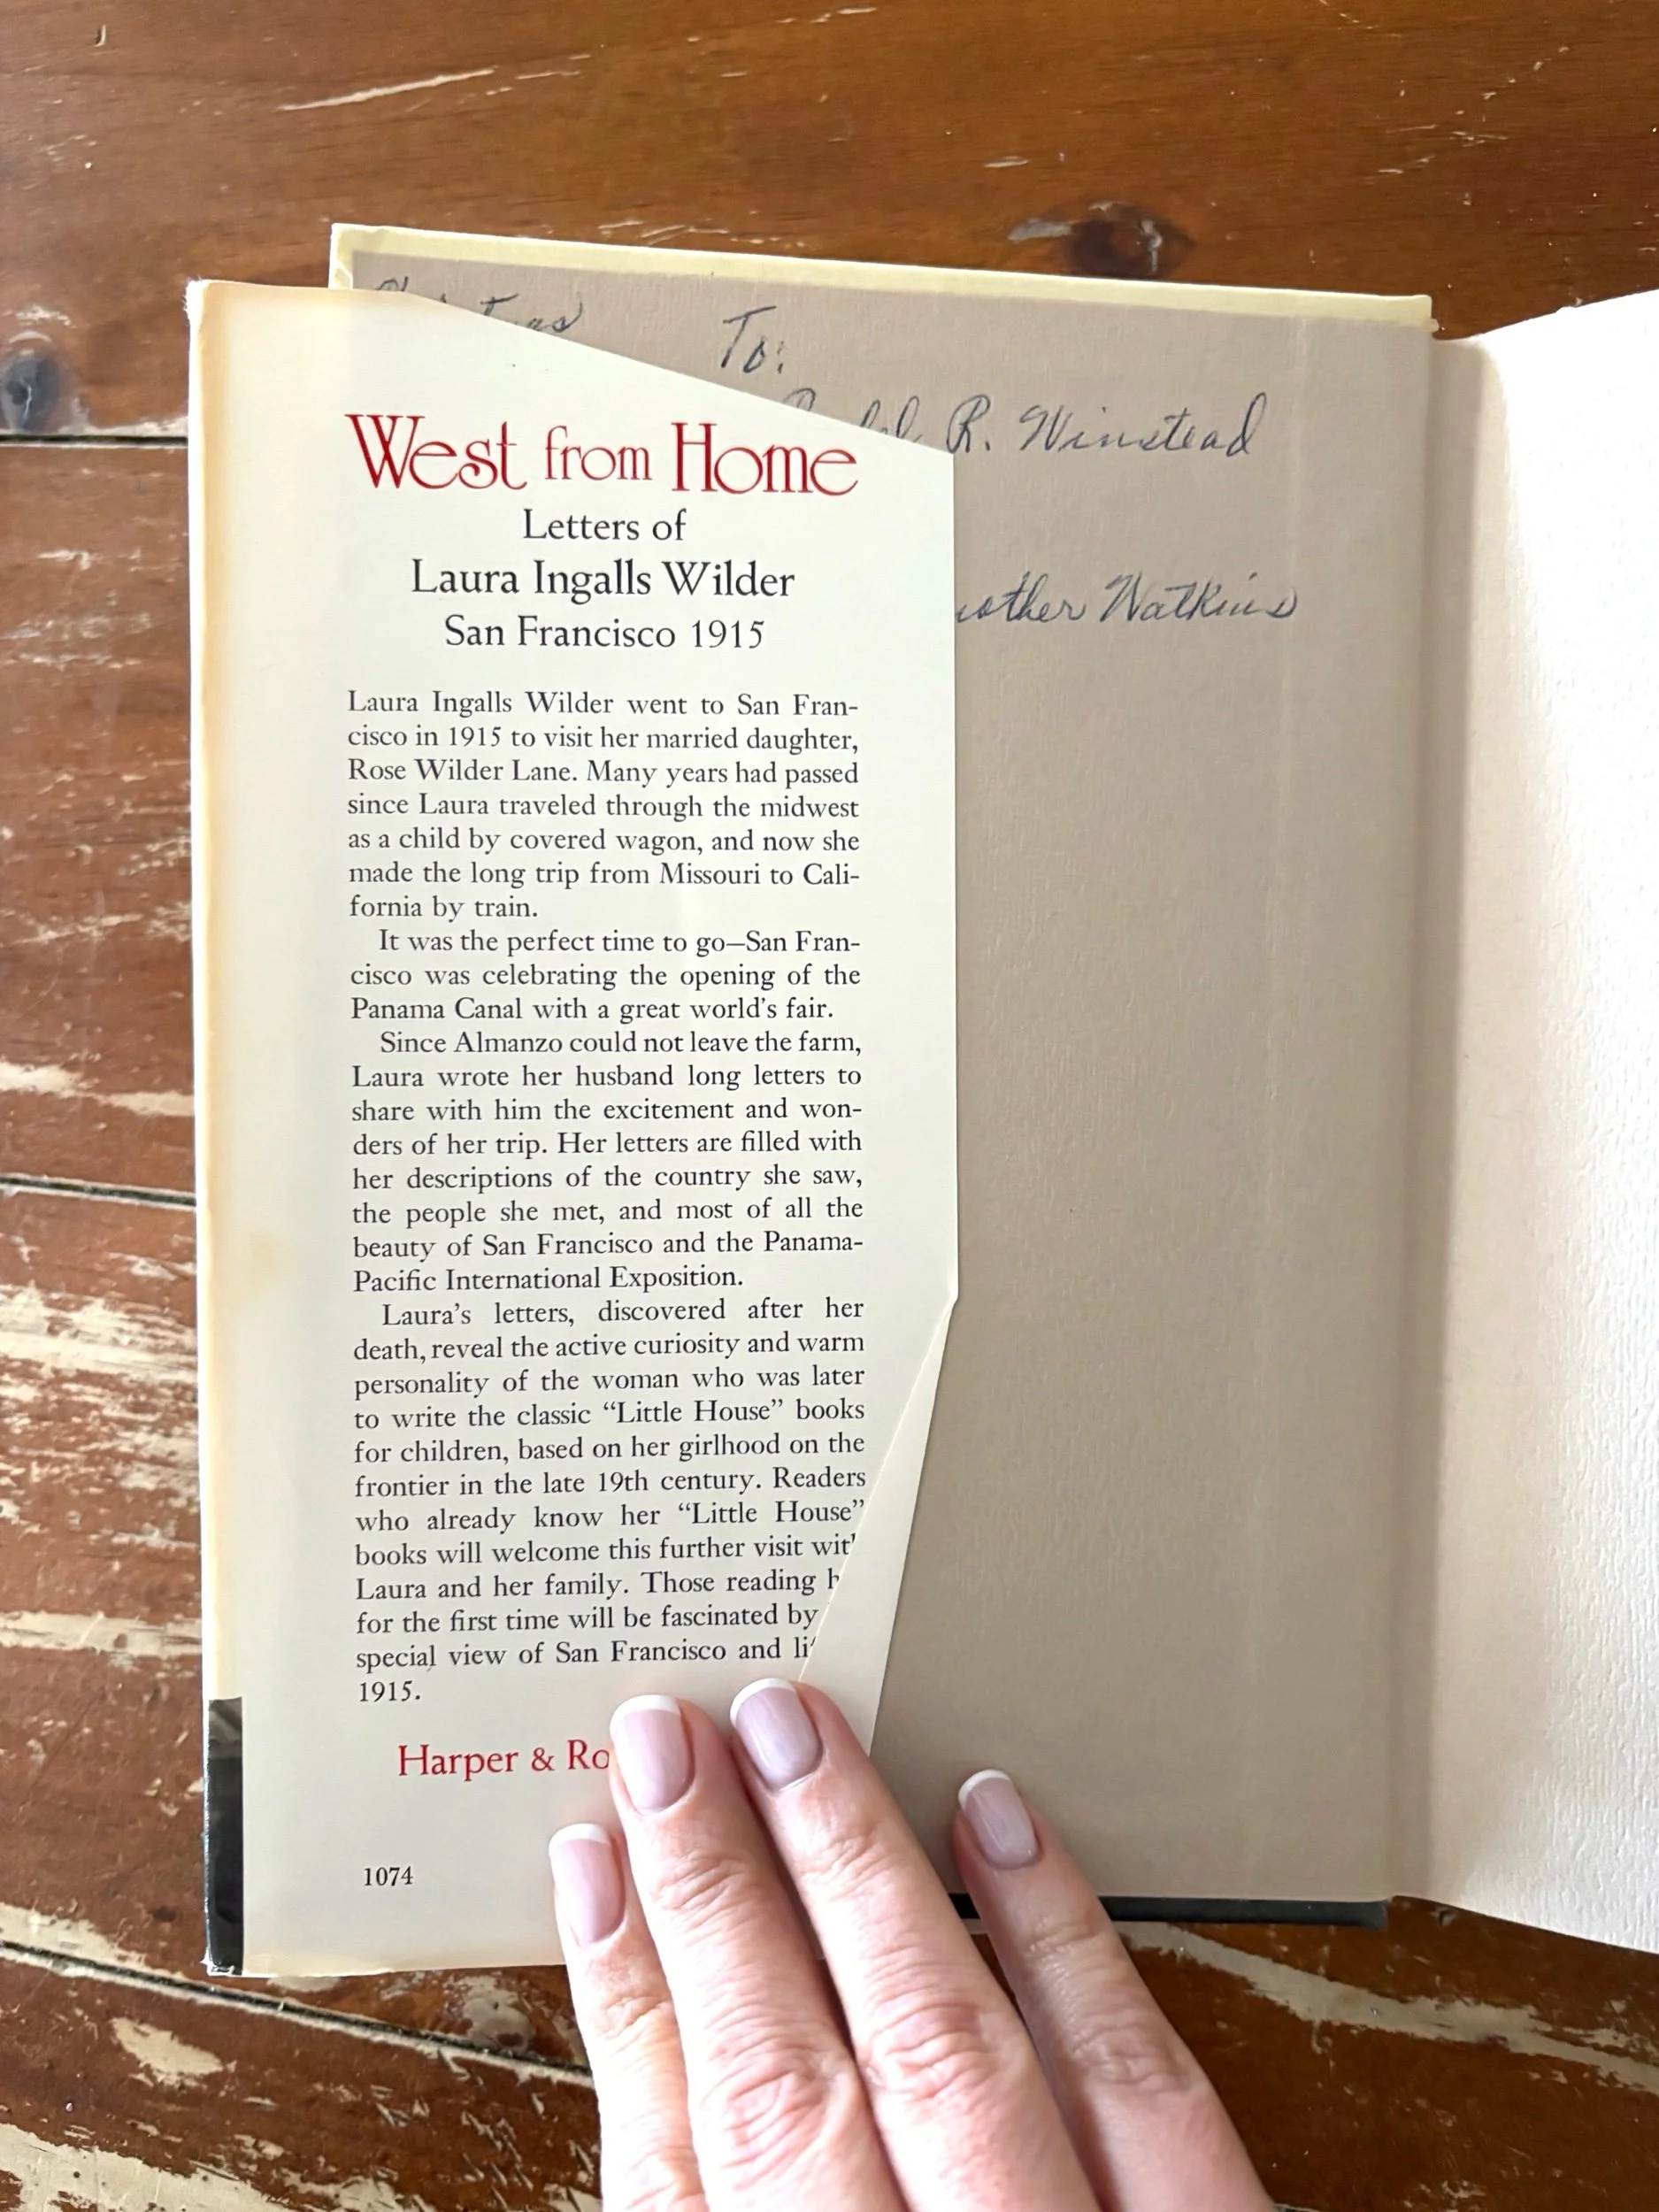 To:
R. Winstead
Watkins
West from Home
Letters of
Laura Ingalls Wilder
San Francisco 1915
Laura Ingalls Wilder went to San Fran-
cisco in 1915 to visit her married daughter,
Rose Wilder Lane. Many years had passed
since Laura traveled through the midwest
as a child by covered wagon, and now she
made the long trip from Missouri to Cali-
fornia by train.
It was the perfect time to go—San Fran-
cisco was celebrating the opening of the
Panama Canal with a great world's fair.
Since Almanzo could not leave the farm,
Laura wrote her husband long letters to
share with him the excitement and won-
ders of her trip. Her letters are filled with
her descriptions of the country she saw,
the people she met, and most of all the
beauty of San Francisco and the Panama-
Pacific International Exposition.
Laura's letters, discovered after her
death, reveal the active curiosity and warm
personality of the woman who was later
to write the classic “Little House” books
for children, based on her girlhood on the
frontier in the late 19th century. Readers
who already know her “Little House”
books will welcome this further visit
Laura and her family. Those reading
for the first time will be fascinated by
special view of San Francisco and
1915.
Harper &
1074